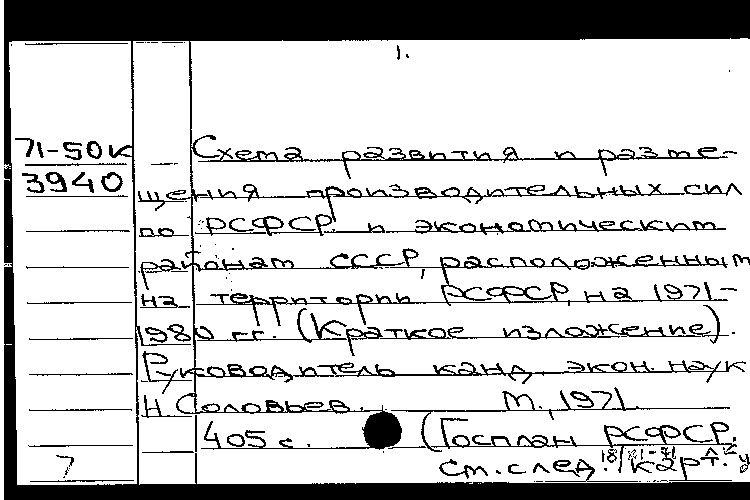 1.
71-50к
3940
Схема развития и разме-
щения производительных сил
по РСФСР и экономическим
районам СССР, расположенным
на территории РСФСР, на 1971-
1980 гг. (Краткое изложение).
Руководитель канд. экон. наук
Н. Соловьев. М., 1971.
405 с. (Госплан РСФСР.
7
см. след. карт.